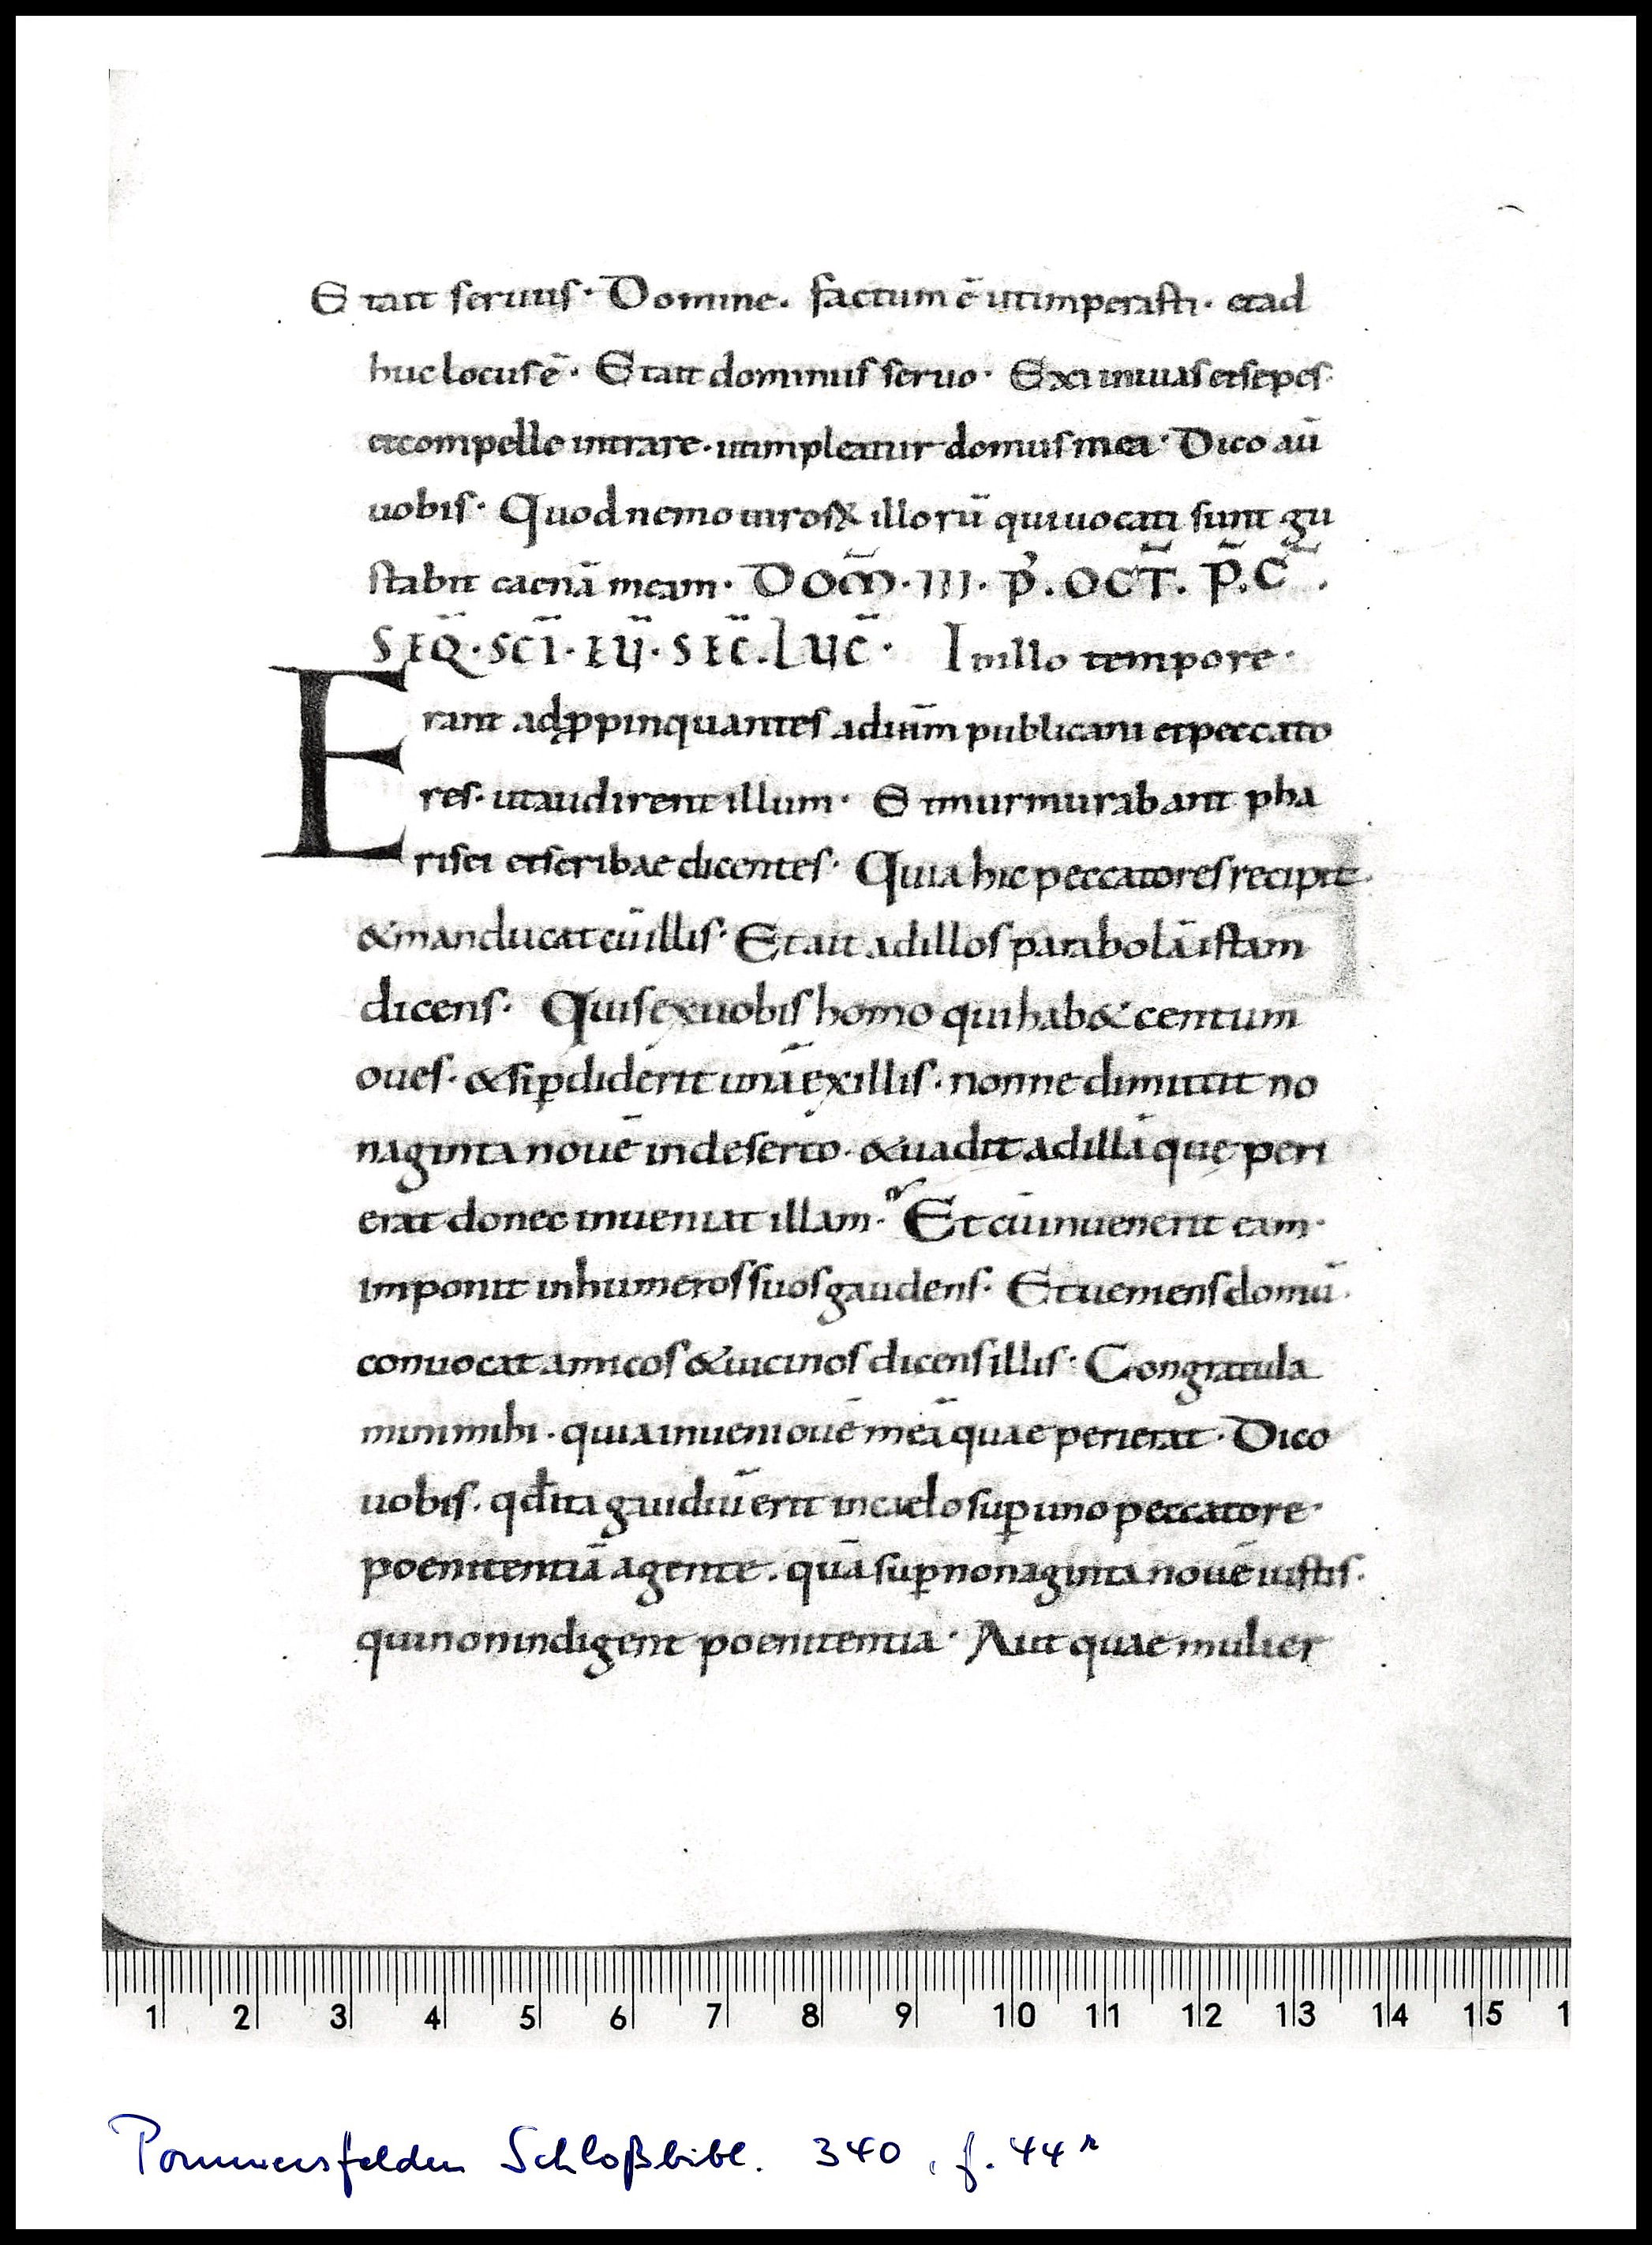 Et ait seruus· Domine. factum ē ut imperasti· et ad
huc locus ē· Et ait dominus seruo· Exi in uias et sepes·
et compelle intrare· ut impleatur domus mea· Dico aū
uobis· Quod nemo uiros& illorū qui uocati sunt gu
stabit caenā meam· DOM̄·III· P᷒. OCT̄. P̄.C̄.
SEQ̄·SCĪ·EŪ·SEC̄·LUC̄· In illo tempore·
Erant adꝓpinquantes ad iūm publicani et peccato
res· ut audirent illum· Et murmurabant pha
risei et scribae dicentes· Quia hic peccatores recipit·
& manducat cū illis· Et ait ad illos parabolā istam
dicens· Quis ex uobis homo qui hab& centum
oues· & si ꝑdiderit unā ex illis· nonne dimittit no
naginta nouē in deserto· & uadit ad illā quę peri
erat donec inueniat illam· Et cū inuenerit eam·
imponit in humeros suos gaudens· Et ueniens domū·
conuocat amicos & uicinos dicens illis· Congratula
mini mihi· quia inueni ouē meā quae perierat· Dico
uobis· qđ ita gaudiū erit in caelo suꝑ uno peccatore·
poenitentiā agente· quā suꝑ nonaginta nouē iustis·
qui non indigent poenitentia· Aut quae mulier
1 2 3 4 5 6 7 8 9 10 11 12 13 14 15 1
Pommersfelden Schloßbibl. 340, f. 44r